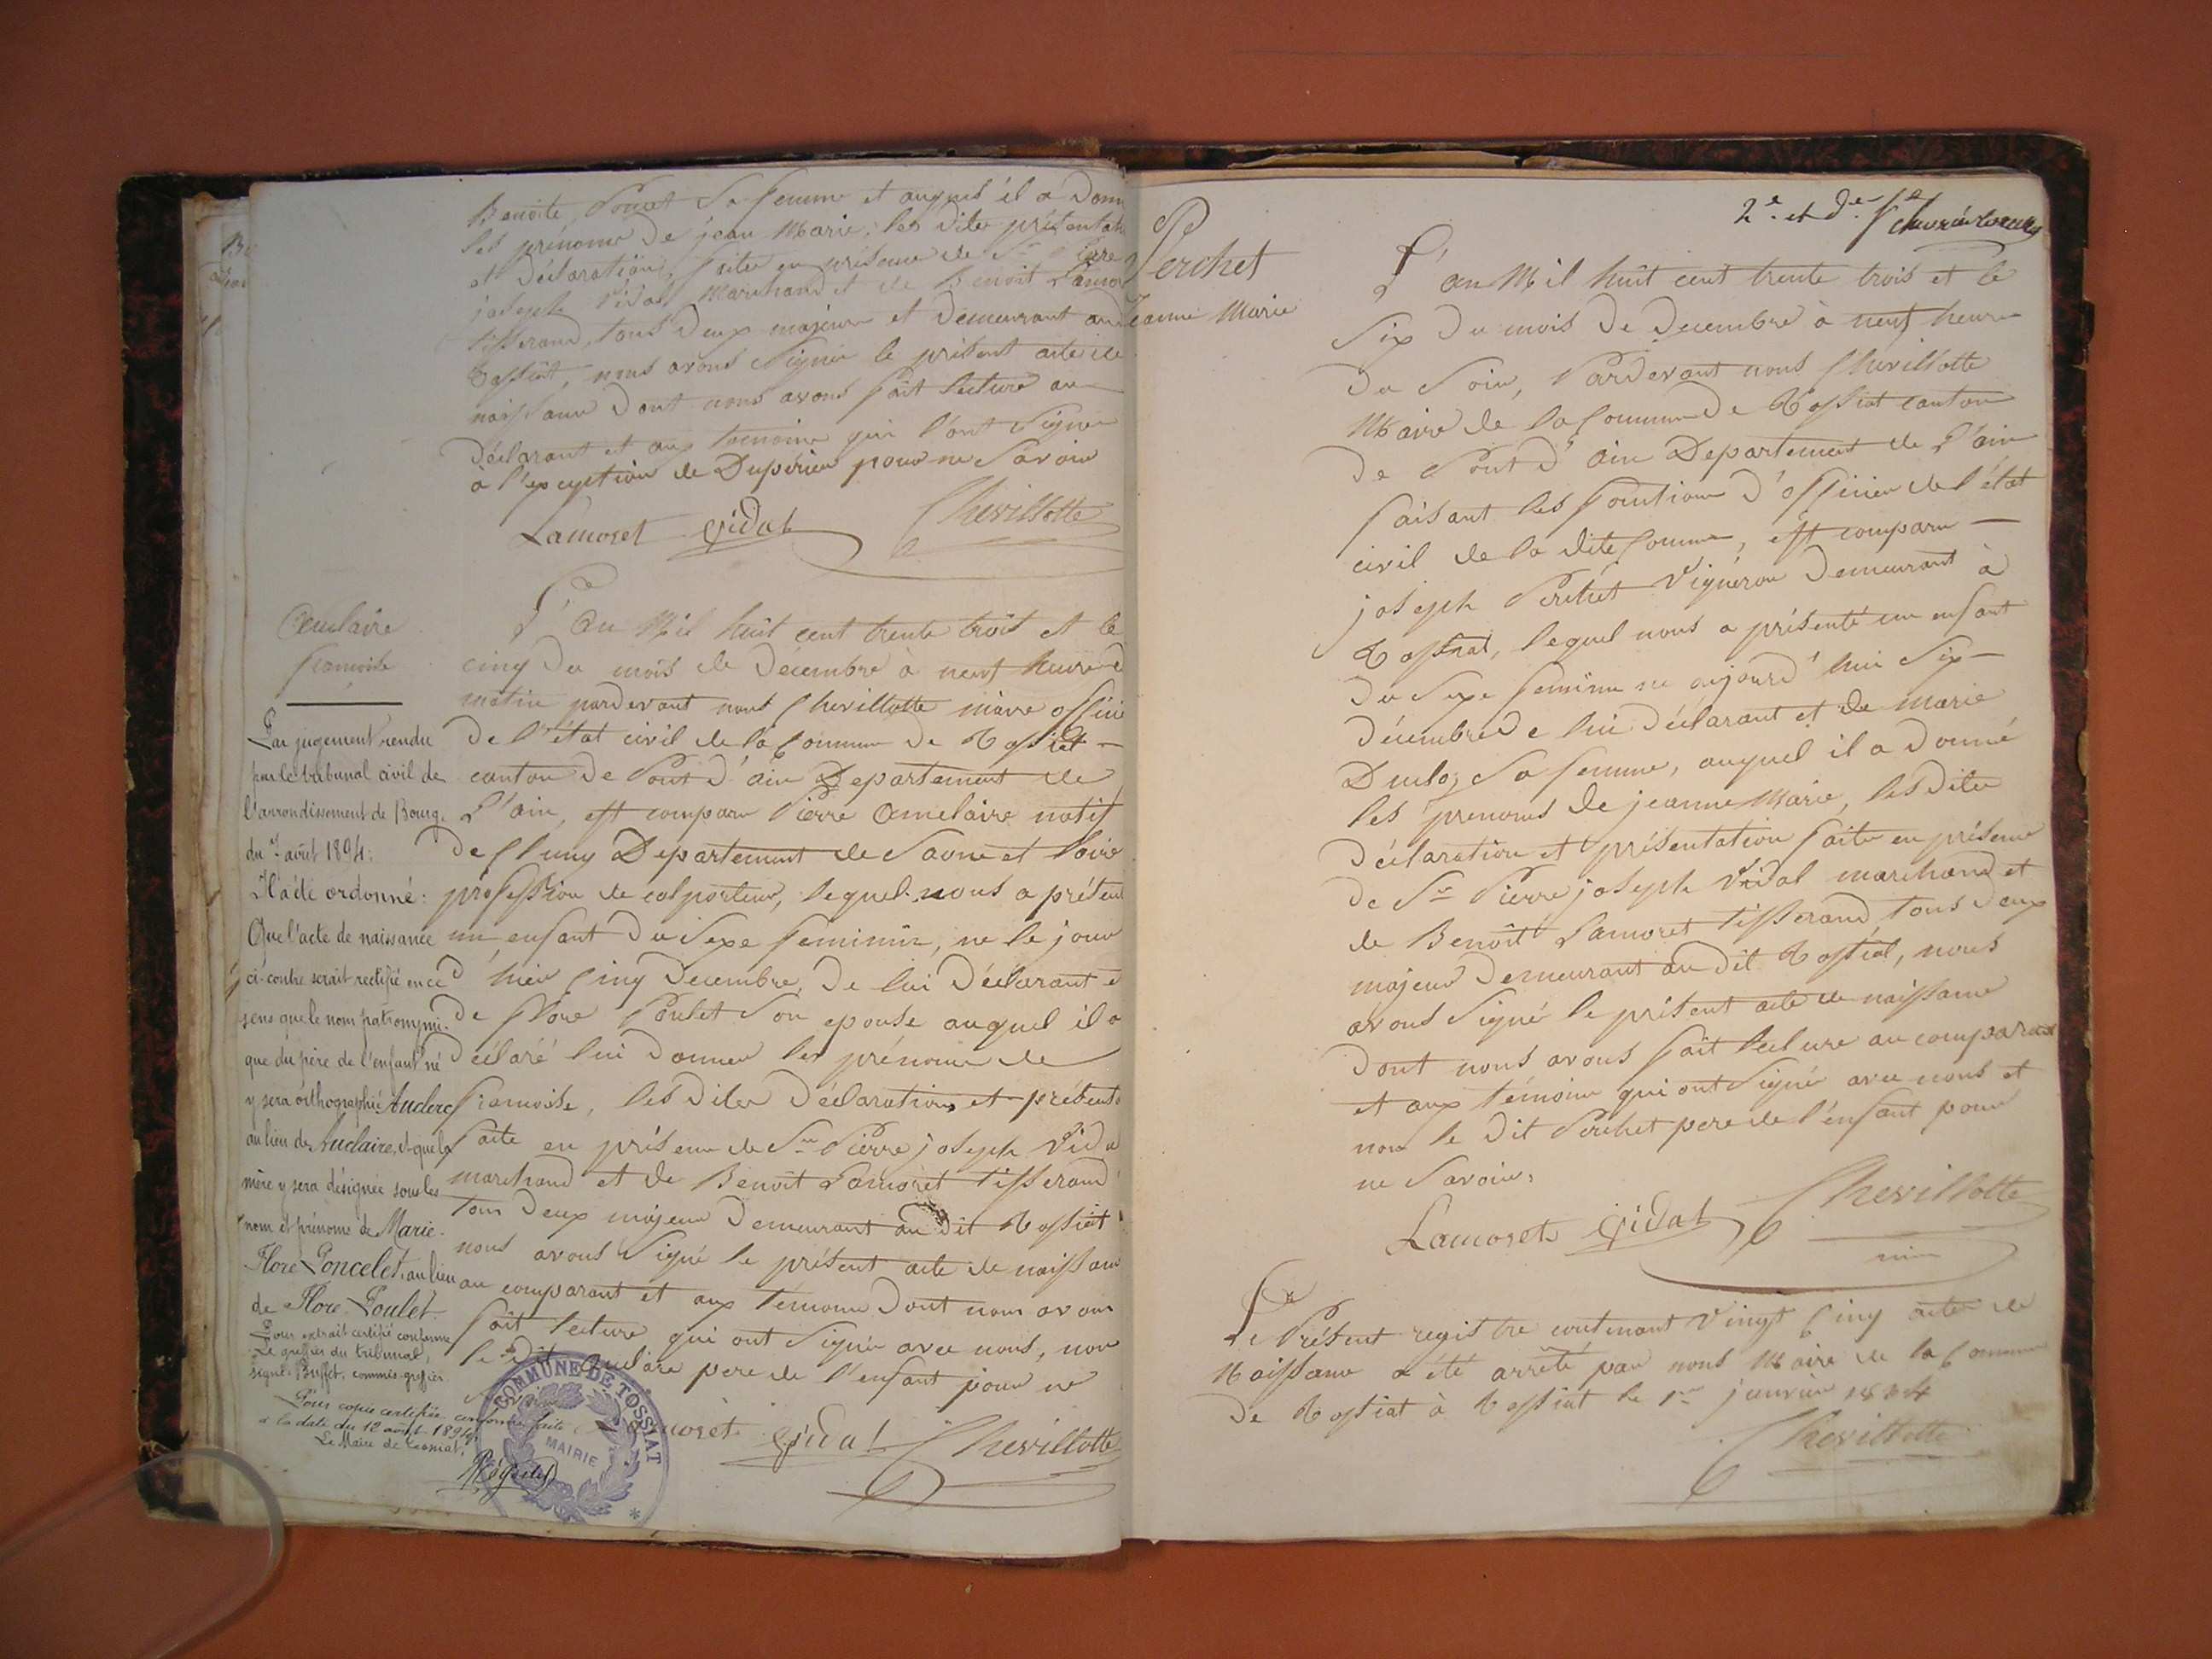 Benoite Poncet Sa femme et auquel il a Donn
les prénoms de jean Marie, les dites présentat
et déclaration, faites en présence de Sr Pierre
joseph Vidal Marchand et de Benoit Lamor
tisserand, tous deux majeurs et demeurant au
Tossiat, nous avons Signer le présent acte de
naissance dont nous avons fait lecture au
déclarant et aux temoins qui l'ont Signer
à l'exception de Dupérier pour ne Savoir
Lamoret Vidal Chevillotte
Auclaire
francoise
L'an Mil huit cent trente trois et le
cinq du mois de Décembre à neuf heure d
matin pardevant nous Chevillotte maire offici
De l'état civil de la Commune de Tossiat
canton de Pont d'ain Departement de
L'ain, est comparu Pierre Auclaire natif
de Cluny Departement de Saone et loire
profession de colporteur, lequel nous a présen
un enfant du Sexe feminin, ne le jour
d'hier Cinq Decembre, De lui Déclarant e
de flore Poulet Son epouse auquel il a
déclaré lui Donner les prénoms de
francoise, les dites Déclarations et présenta
faite en présence de Sr Pierre joseph Vida
marchand et de Benoit Lamoret tisserand
tous deux majeur Demeurant au Dit Tossiat
nous avons Signé le présent acte de naissanc
au comparant et aux témoins Dont nous avons
fait lecture qui ont Signer avec nous, non
le Dit Auclaire pere de l'enfant pour ne
Savoir
Lamoret Vidal Chevillotte
Par jugement rendu
par le tribunal civil de
l'arrondissement de Bourg
du 1er août 1894:
Il a été ordonné:
Que l'acte de naissance
ci-contre serait rectifié en ce
sens que le nom patronymi-
que du père de l'enfant né
y sera orthographié Auclerc
au lieu de Auclaire, et que la
mère y sera désignée sous les
nom et prénoms de Marie-
Flore Poncelet, au lieu
de Flore Poulet.
Pour extrait certifié conforme
Le greffier du tribunal,
signé: Buffet, commis-greffier
Pour copie certifiée conforme faite
à la date du 12 août 1894.
Le Maire de Tossiat,
COMMUNE DE TOSSIAT
MAIRIE
2e et de
Perchet
Jeanne Marie
L'an Mil huit cent trente trois et le
Six du mois de Decembre à neuf heure
du Soir, Pardevant nous Chevillotte
Maire de la Commune de Tossiat canton
de Pont d'ain Departement de L'ain
faisant les fonctions d'officier de l'état
civil de la dite Comme, est comparu
joseph Perchet Vigneron Demeurant à
Tossiat, lequel nous a présenté un enfant
du Sexe feminin ne aujourd'hui Six
décembre de lui déclarant et de Marie
Duclos Sa femme, auquel il a donné
les prenoms de jeanne Marie, les dites
déclaration et présentation faite en présence
de Sr Pierre joseph Vidal marchand et
de Benoit Lamoret tisserand, tous deux
majeur demeurant au dit Tossiat, nous
avons Signé le présent acte de naissance
dont nous avons fait lecture au comparant
et aux témoins qui ont Signé avec nous et
non le Dit Perchet pere de l'enfant pour
ne Savoir,
Lamoret Vidal Chevillotte
Le Présent registre contenant Vingt Cinq actes de
Naissance a été arrêté par nous Maire de la Commune
de Tossiat à Tossiat le 1er janvier 1834
Chevillotte